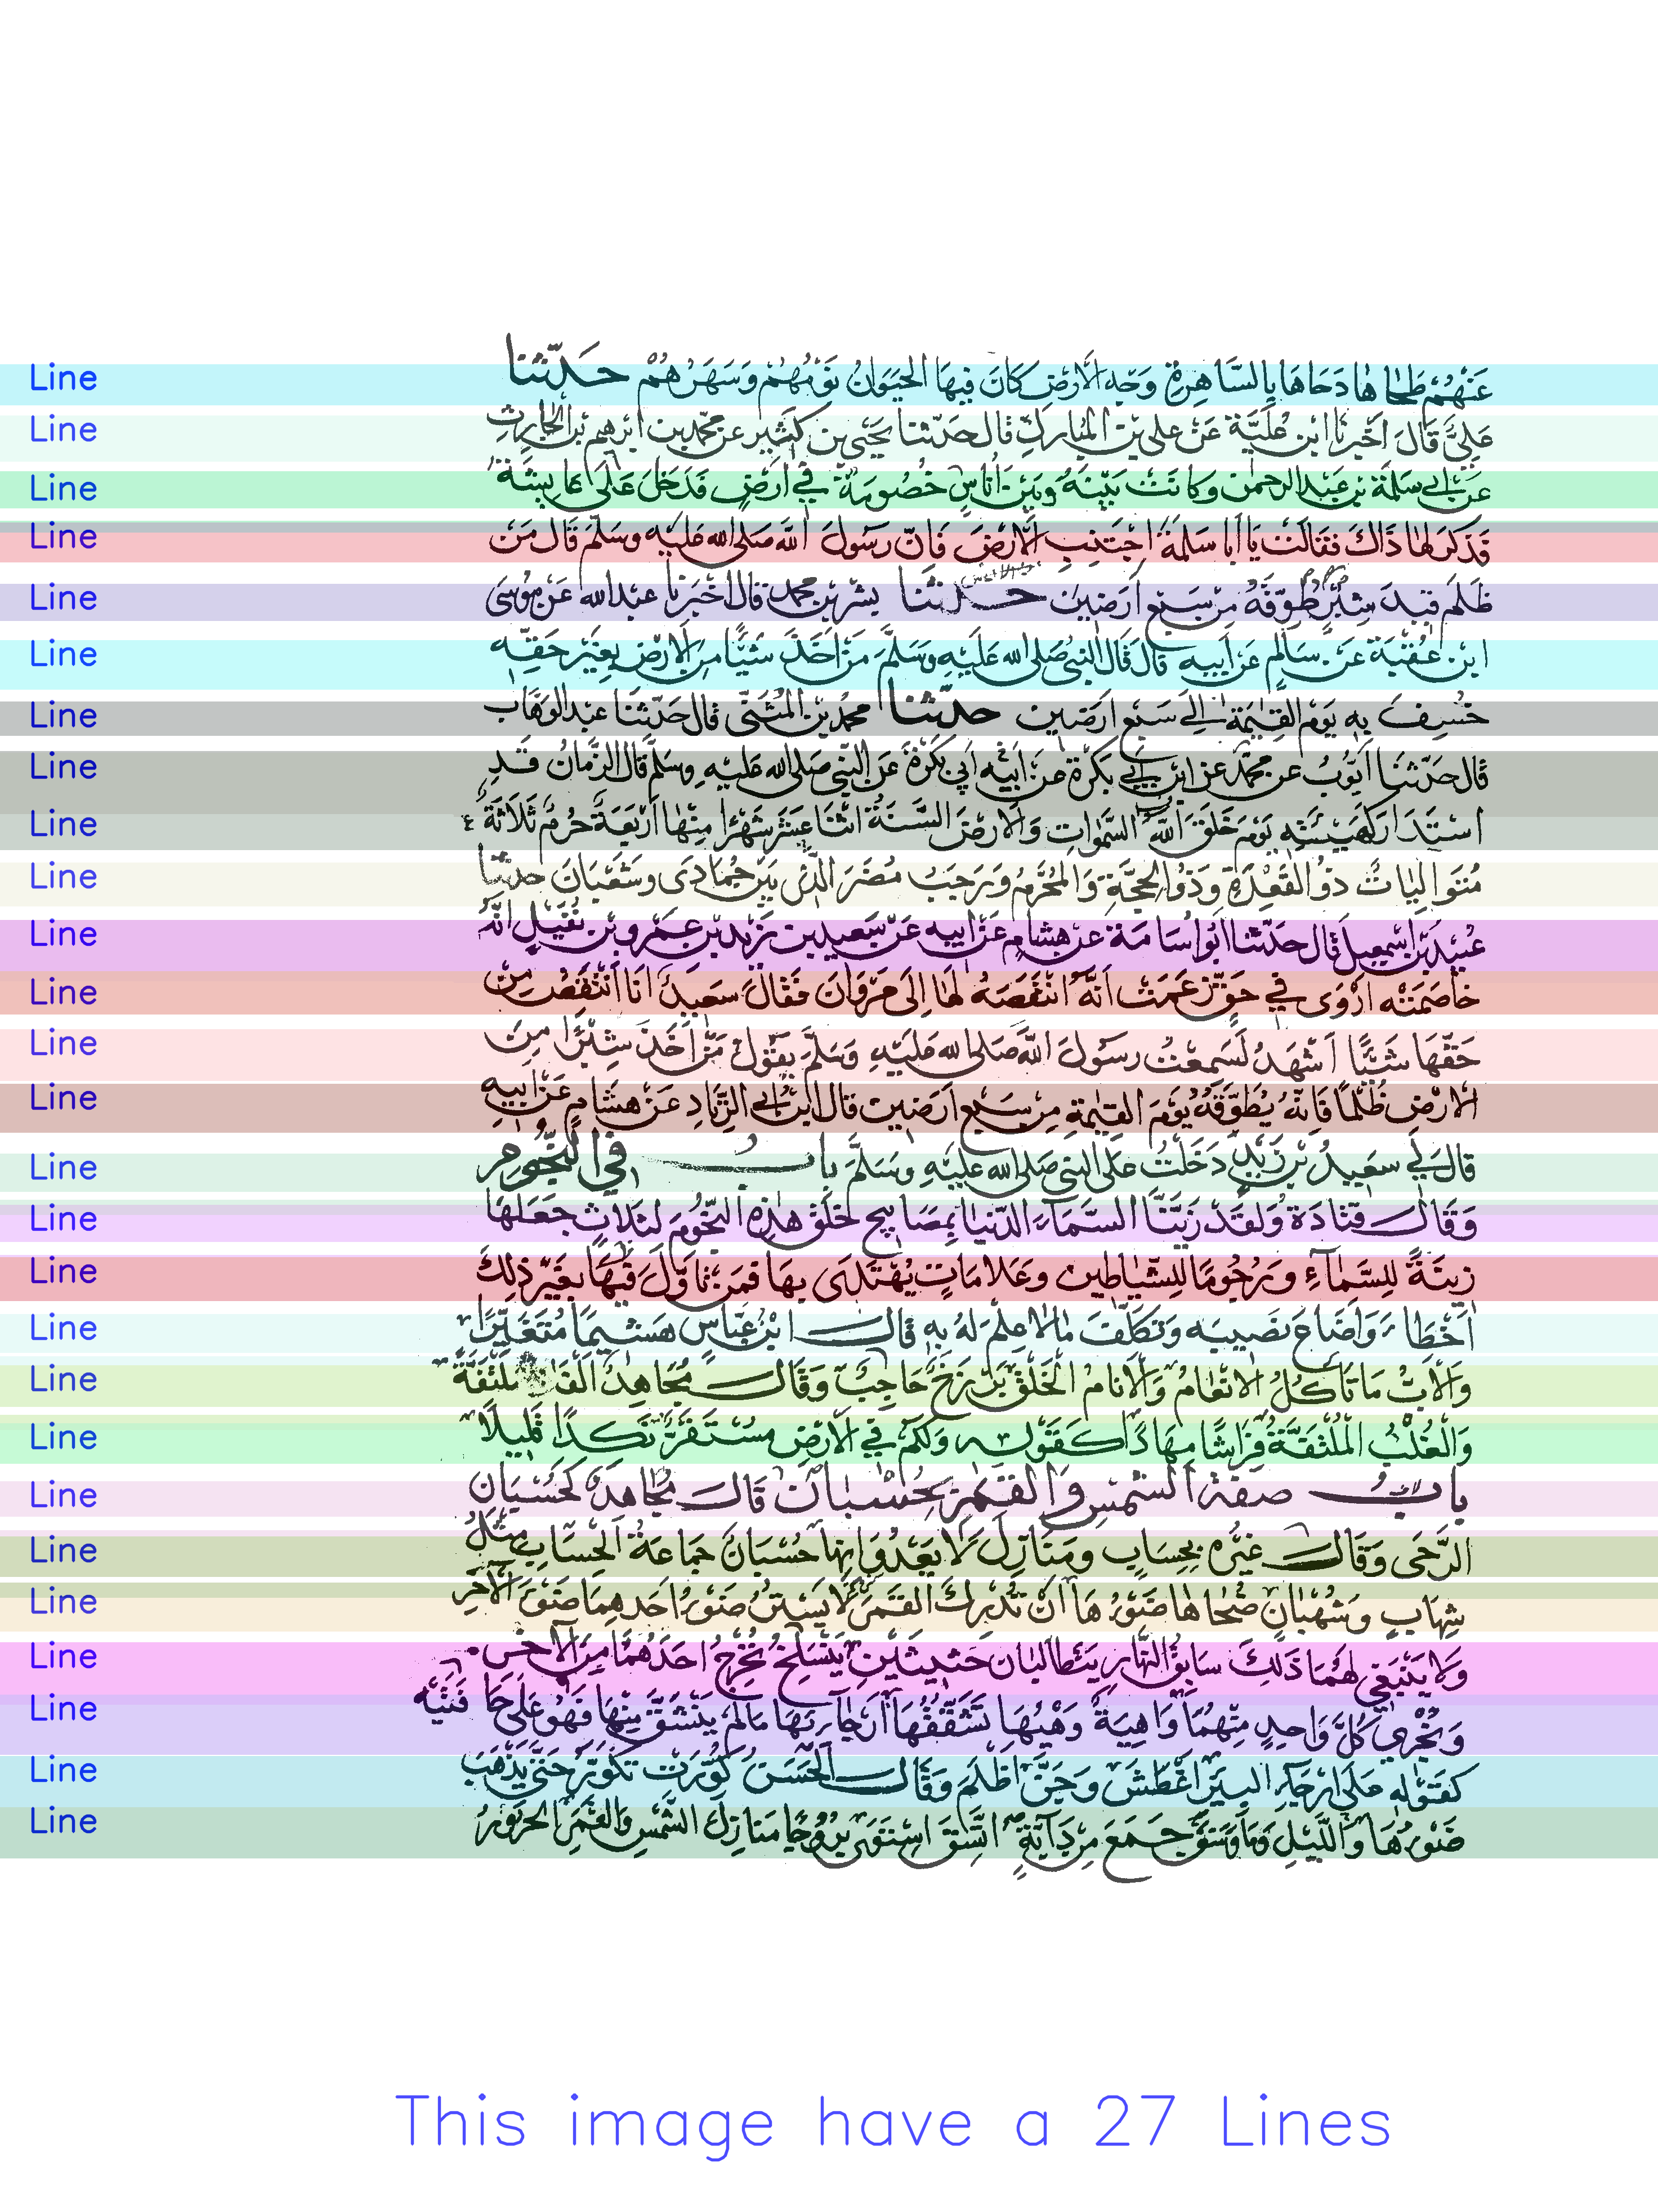 Line عَنْهُمْ طحاها دَحَاهَا بِالسَّاهِرَةِ وَجْهِ الْاَرْضِ كَانَ فِيهَا الْحَيَوَانُ نَوْمُهُمْ وَسَهَرُهُمْ حدّثنا
Line عَلِيٌّ قَالَ اخبرنا ابن عُلَيَّة عَنْ علي بن المُبارك قال حدثنا يحيى بن كثير عن محمد بن ابرهيم بن الحارث
Line عن ابي سلمة بن عبد الرحمن وكانت بينه وبين اُناس خُصُومة في ارض فدخل على عايشة
Line فذكر لها ذاك فقالت يا ابا سلمة اجتنب الارض فان رسول الله صلى الله عليه وسلم قال من
Line ظلم قيد شبر طوقه من سبع ارضين حدثنا بشر بن محمد قال اخبرنا عبد الله عن موسى
Line ابن عقبة عن سالم عن ابيه قال قال النبي صلى الله عليه وسلم من اخذ شيئا من الارض بغير حقه
Line خُسِف به يوم القيمة الى سبع ارضين حدثنا محمد بن المثنى قال حدثنا عبد الوهاب
Line قال حدثنا ايوب عن محمد عن ابن ابي بكرة عن ابيه ابي بكرة عن النبي صلى الله عليه وسلم قال الزمان قد
Line استدار كهيئته يوم خلق الله السموات والارض السنة اثنا عشر شهرا منها اربعة حرم ثلاثة
Line متواليات ذو القعدة وذو الحجة والمحرم ورجب مضر الذي بين جمادى وشعبان حدثنا
Line عبيد بن اسمعيل قال حدثنا ابو اسامة عن هشام عن ابيه عن سعيد بن زيد بن عمرو بن نفيل انه
Line خاصمته اروى في حق زعمت انه انتقصه لها الى مروان فقال سعيد انا انتقص من
Line حقها شيئا اشهد لسمعت رسول الله صلى الله عليه وسلم يقول من اخذ شبرا من
Line الارض ظلما فانه يطوقه يوم القيمة من سبع ارضين قال ابن ابي الزناد عن هشام عن ابيه
Line قال لي سعيد بن زيد دخلت على النبي صلى الله عليه وسلم باب في النجوم
Line وقال قتادة ولقد زينا السماء الدنيا بمصابيح خلق هذه النجوم لثلاث جعلها
Line زينة للسماء ورجوما للشياطين وعلامات يهتدى بها فمن تاول فيها بغير ذلك
Line اخطا واضاع نصيبه وتكلف ما لا علم له به قال ابن عباس هشيما متغيرا
Line والاب ما تاكل الانعام والانام الخلق برزخ حاجب وقال مجاهد الفافا ملتفة
Line والغلب الملتفة فراشا مهادا كقوله ولكم في الارض مستقر نكدا قليلا
Line باب صفة الشمس والقمر بحسبان قال مجاهد كحسبان
Line الرحى وقال غيره بحساب ومنازل لا يعدوانها حسبان جماعة الحساب مثل
Line شهاب وشهبان ضحاها ضوءها ان تدرك القمر لا يستر ضوء احدهما ضوء الآخر
Line ولا ينبغي لهما ذلك سابق النهار يتطالبان حثيثين ينسلخ نخرج احدهما من الآخر
Line ونجري كل واحد منهما واهية وهيها تشققها ارجائها ما لم ينشق منها فهو على حا فتيه
Line كقوله على ارجاء البير اغطش وجن اظلم وقال الحسن كورت تكور حتى يذهب
Line ضوءها والليل وما وسق جمع من دابة اتسق استوى بروجا منازل الشمس والقمر الحرور
This image have a 27 Lines